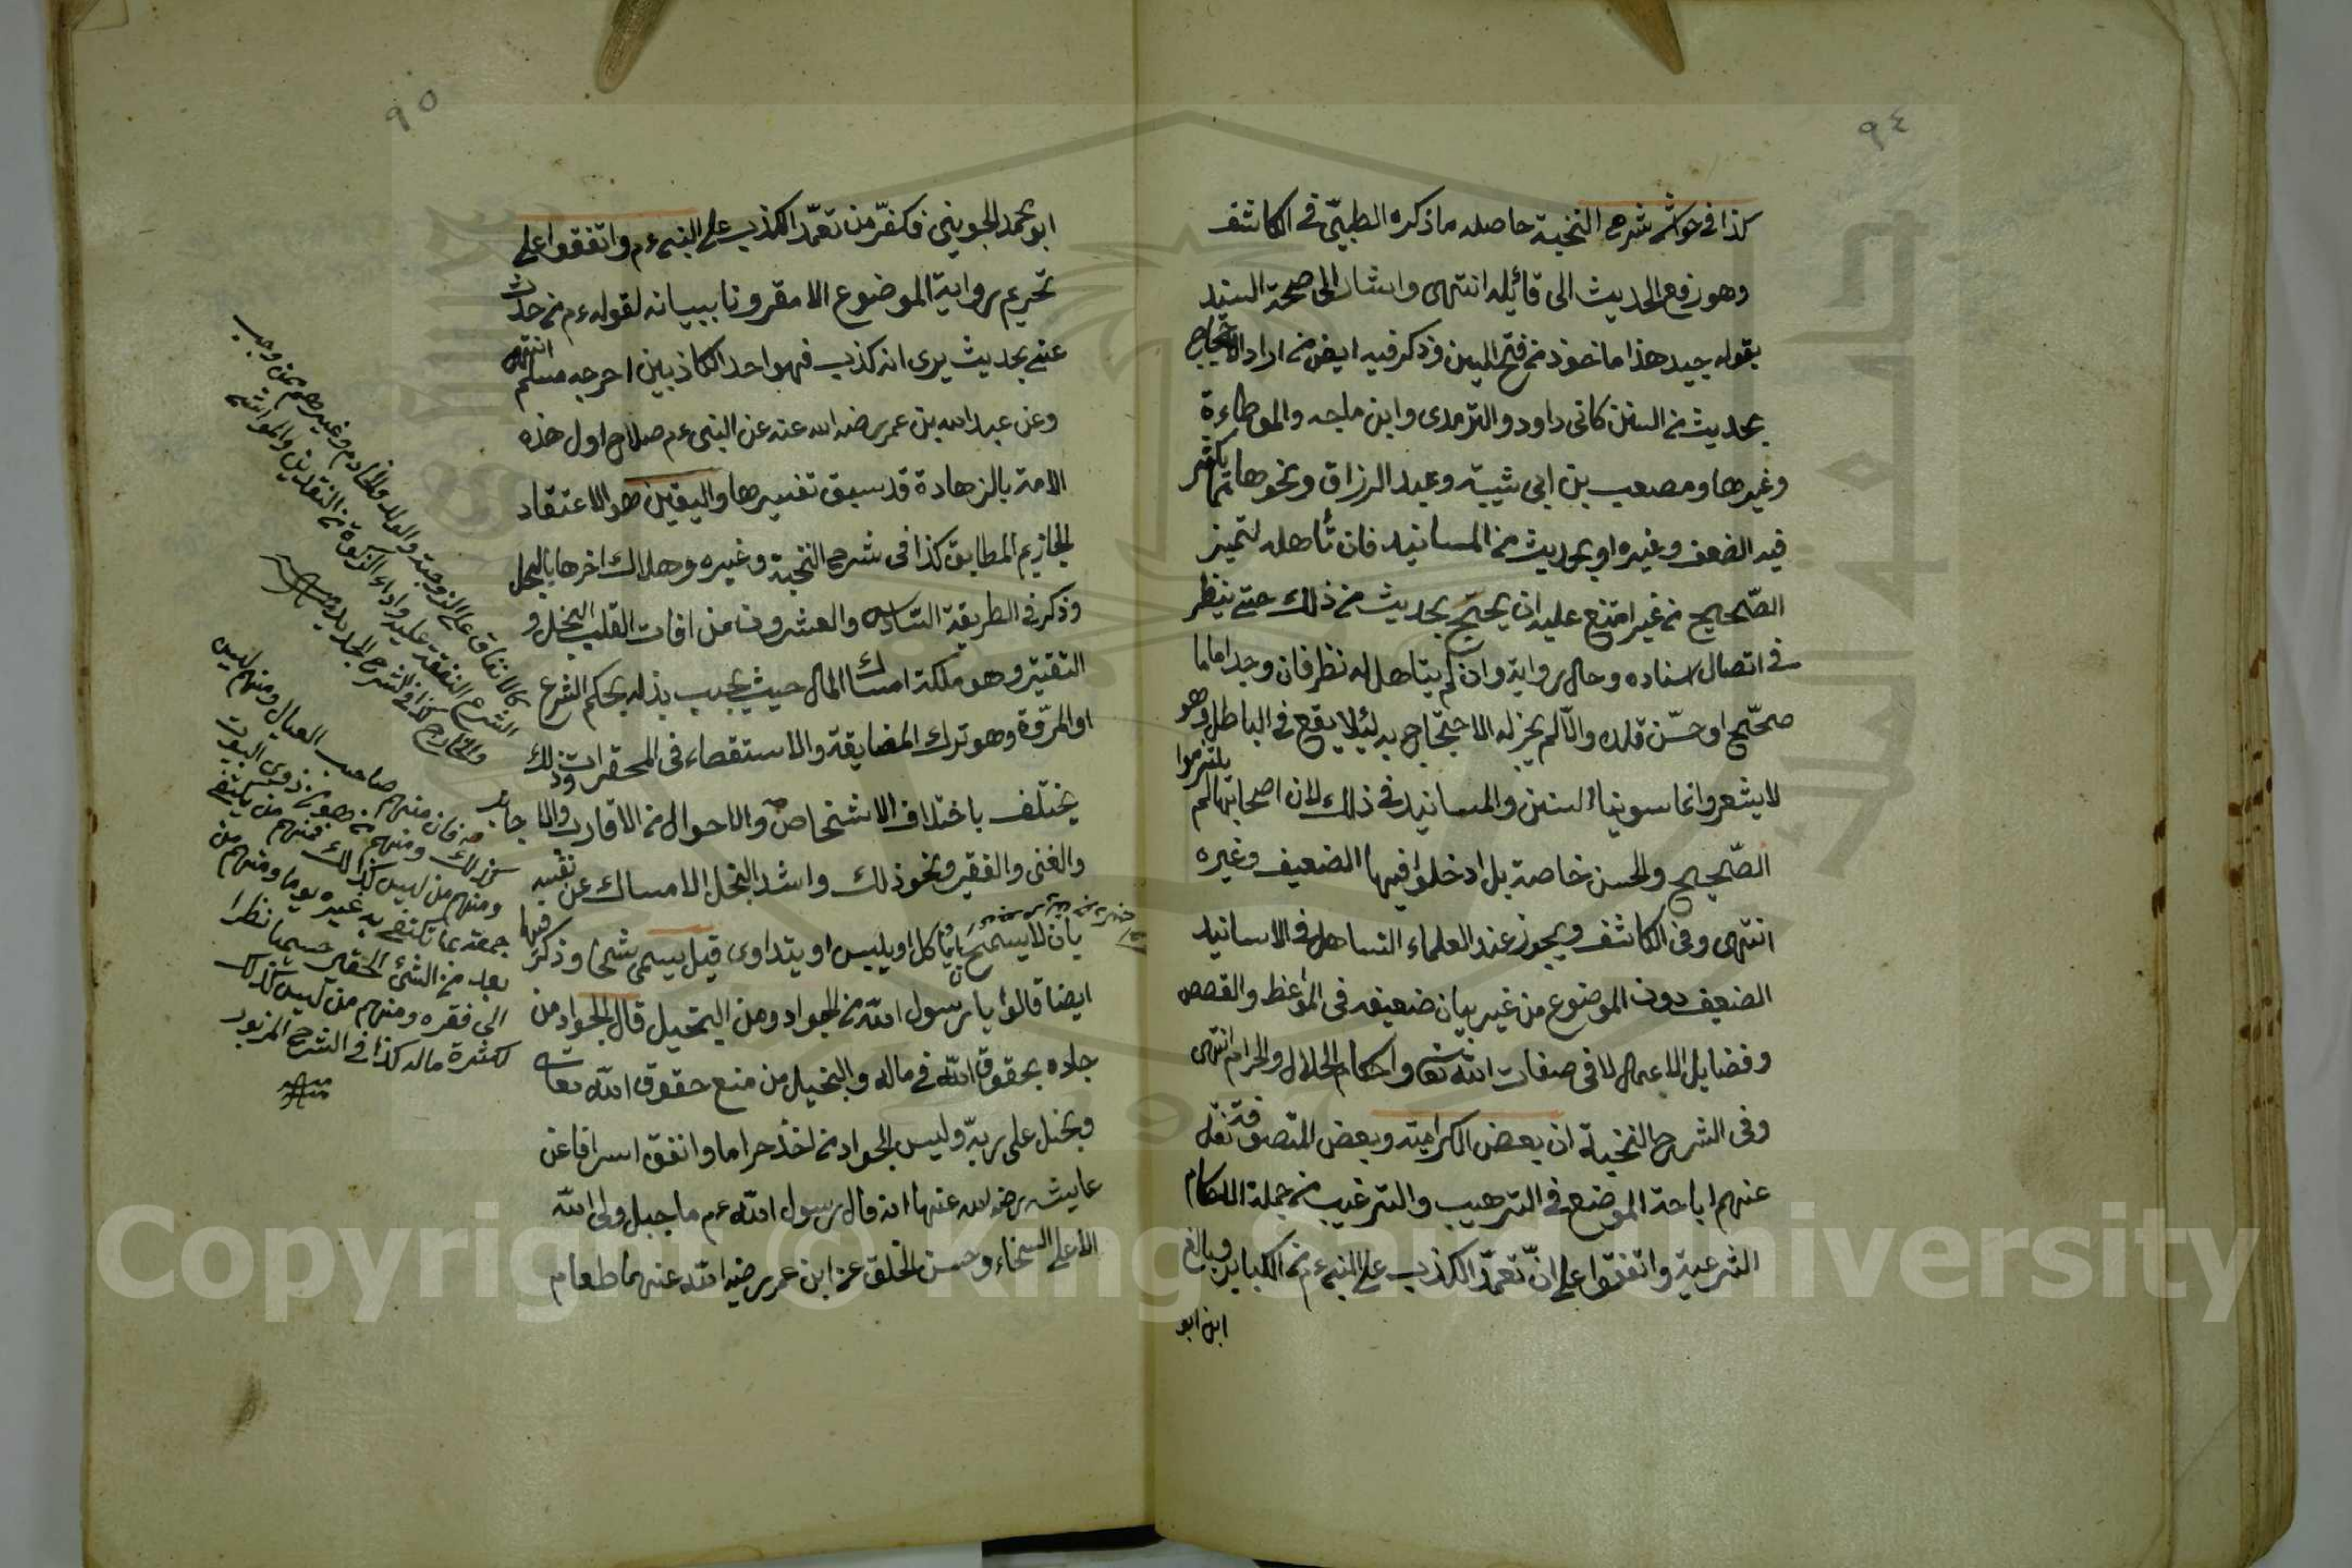 ٩٤
كذا في حواشي شرح النخبة حاصله ما ذكره الطيبي في الكاشف
وهو رفع الحديث الى قائله انتهى واشار الى صحة السند
بقوله جيد هذا ماخوذ من فتح المبين وذكر فيه ايضا من اراد الاحتجاج
بحديث من السنن كابى داود والترمدى وابن ماجه والموطاءة
وغيرها ومصعب بن ابى شيبة وعبد الرزاق ونحوها مما يكثر
فيه الضعف وغيره او بحديث من المسانيد فان تأهل لتميز
الصّحيح من غير امتنع عليه ان يحتج بحديث من ذلك حتى ينظر
فى اتصال اسناده وحال رواية وان لم يتاهل له نظر فان وجد اماما
صحّح او حسّن قلده والّا لم يجز له الاحتجاج به لئلا يقع فى الباطل وهو
لا يشعر وانما سوينا السنن والمسانيد فى ذلك لان اصحابها لم يلتزموا
الصّحيح والحسن خاصة بل ادخلوا فيها الضعيف وغيره
انتهى وفى الكاشف ويجوز عند العلماء التساهل فى الاسانيد
الضعيف دون الموضوع من غير بيان ضعيفه فى المواعظ والقصص
وفضايل الاعمال لا فى صفات الله تعا واحكام الحلال والحرام انتهى
وفى الشرح النخبة ان بعض الكرامية وبعض المتصوفة نقل
عنهم اباحة الموضع فى الترهيب والترغيب من جملة الاحكام
الشرعية واتفقوا على انّ تعمّد الكذب على النبى ء م من الكباير وبالغ
ابن ابو
٩٥
ابو محمد الجويني فكفّر من تعمّد الكذب على النبى ء م واتفقوا على
تحريم رواية الموضوع الا مقرونا ببيانه لقوله ء م من حدث
عنى بحديث يرى انه كذب فهو احد الكاذبين اخرجه مسلم انتهى
وعن عبد الله بن عمر رضى الله عنه عن النبى ء م صلاح اول هذه
الامة بالزهادة قد سبق تفسيرها واليقين هو الاعتقاد
الجازيم المطابق كذا فى شرح النخبة وغيره وهلاك اخرها بالبخل
وذكر فى الطريقة السادس والعشرون من افات القلب البخل و
التقتير وهو ملكة امساك المال حيث يجب بذله بحكم الشرع
او المرّوة وهو ترك المضايقة والاستقصاء فى المحقرات وذلك
يختلف باختلاف الاشخاص والاحوال من الاقارب والاجانب
والغنى والفقير ونحو ذلك واشد البخل الامساك عن نفسه
بان لا يسمح ان ياكل او يلبس او يتداوى قيل يسمى شحا وذكر فيها
ايضا قالوا يا رسول الله من الجواد ومن البخيل قال الجواد من
جاده بحقوق الله فى ماله والبخيل من منع حقوق الله تعالى
وبخل على ربّه وليس الجواد من اخذ حراما وانفق اسرافا عن
عايشه رضى الله عنها انه قال رسول الله ء م ما جبل ولى الله
الا على السخاء وحسن الخلق عن ابن عمر رضى الله عنهما طعام
كالانفاق على الزوجة والولد والخادم وغيرهم ممن وجب
الشرع النفقة عليه واداء الزكوة من النقدين والمواشى
والخارج كذا فى الشرح الجديد
فان منهم صاحب العيال ومنهم ليس
كذلك ومنهم من هو من ذوى البيوت
ومنهم من ليس كذلك فمنهم من يكتفى
جمعة بما تكتفى به غيره يوما ومنهم من
بعد من الشئ الحقير جسيما نظرا
الى فقره ومنهم من ليس كذلك
لكثرة ماله كذا فى الشرح المزبور
Copyright © King Saud University